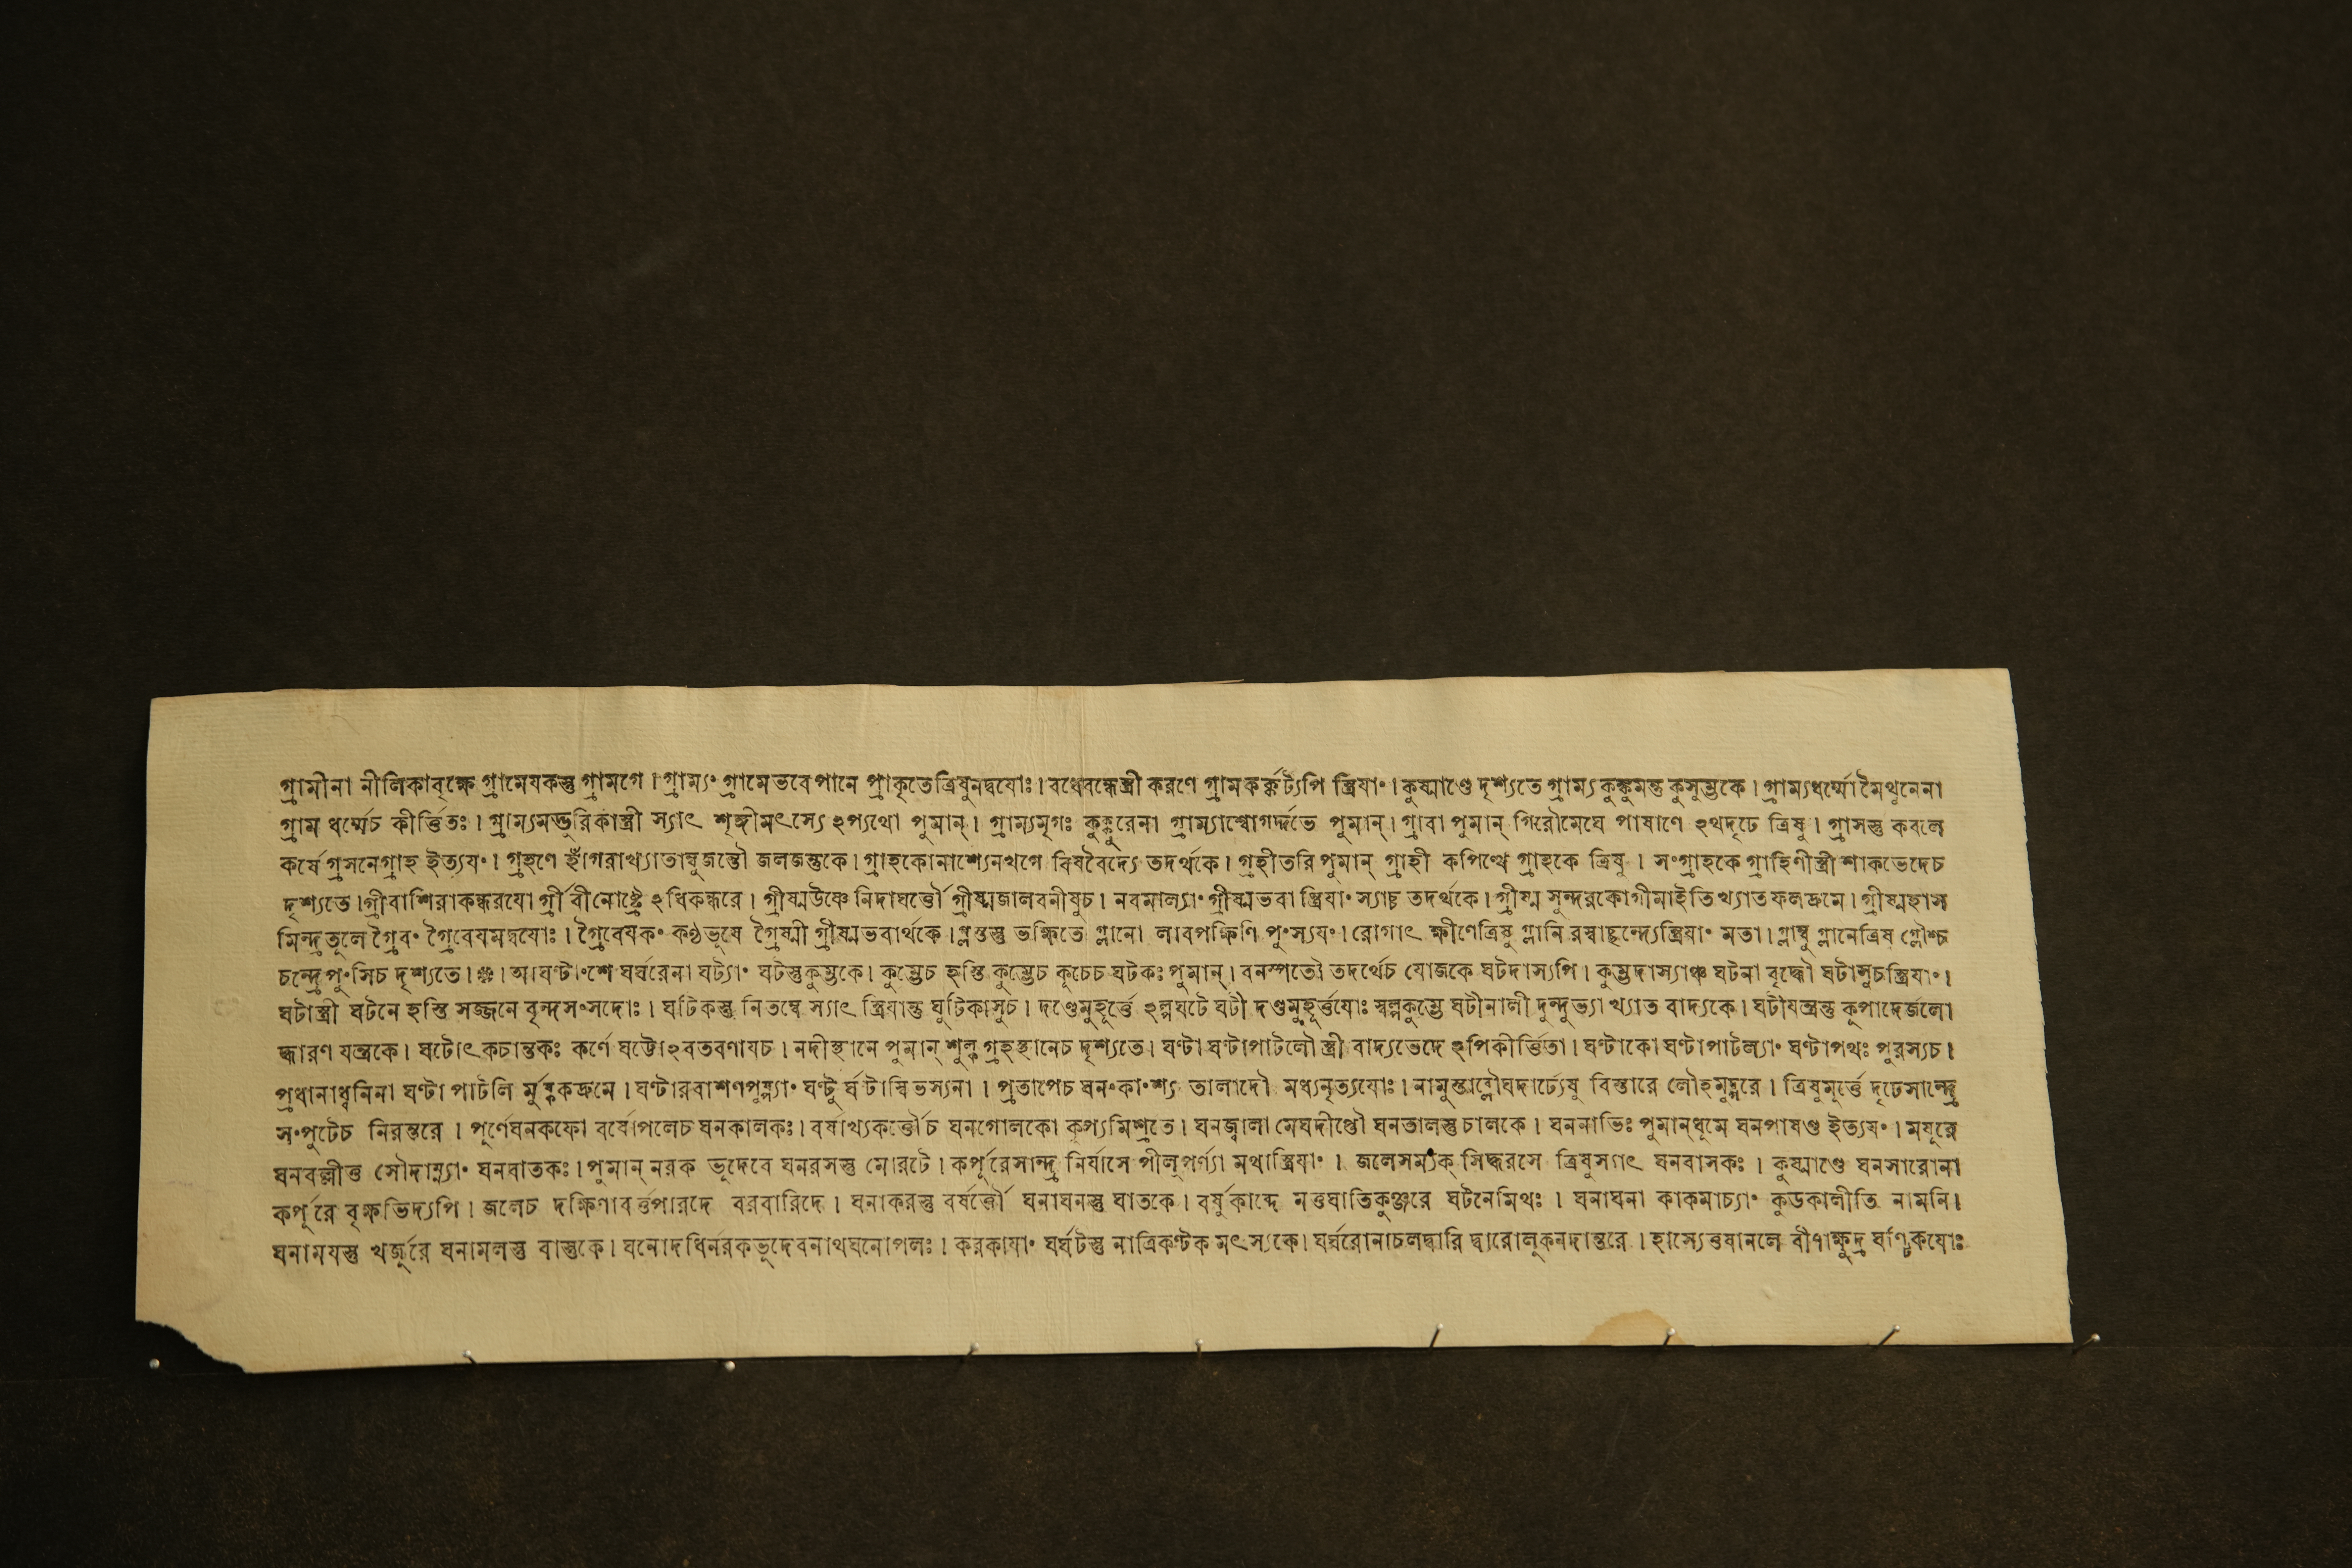 গ্রামীনা নীলিকাবৃক্ষে গ্রামেযকস্তু গ্রামগে । গ্রাম্যং গ্রামেভবেপানে প্রাকৃতেত্রিষুনদ্বযোঃ । বধেবন্ধেস্ত্রী করণে গ্রামকর্ক্কট্যপি স্ত্রিযাং । কুষ্মাণ্ডে দৃশ্যতে গ্রাম্য কুঙ্কুমন্ত কুসুম্ভকে । গ্রাম্যধর্ম্মো মৈথুনেনা
গ্রাম ধর্ম্মেচ কীর্ত্তিতঃ । গ্রাম্যমদ্গুরিকাস্ত্রী স্যাৎ শৃঙ্গীমৎস্যে ঽপ্যথো পুমান্ । গ্রাম্যমৃগঃ কুক্কুরেনা গ্রাম্যাশ্বোগর্দ্দভে পুমান্ । গ্রাবা পুমান্ গিরৌমেঘে পাষাণে ঽথদৃঢে ত্রিষু । গ্রাসস্তু কবলে
কর্ষে গ্রসনেগ্রাহ ইত্যযং । গ্রহণে হাঁগরাখ্যাতাম্বুজন্তৌ জলজন্তুকে । গ্রাহকোনাশ্যেনখগে বিষবৈদ্যে তদর্থকে । গ্রহীতরি পুমান্ গ্রাহী কপিত্থে গ্রাহকে ত্রিষু । সংগ্রাহকে গ্রাহিণীস্ত্রী শাকভেদেচ
দৃশ্যতে । গ্রীবাশিরাকন্ধরযো র্গ্রীবীনোষ্ট্রে ঽধিকন্ধরে । গ্রীষ্মউষ্ণে নিদাঘর্ত্তৌ গ্রীষ্মজালবনীষুচ । নবমাল্যাং গ্রীষ্মভবা স্ত্রিযাং স্যাচ্চ তদর্থকে । গ্রীষ্ম সুন্দরকোগীমাইতিখ্যাত ফলদ্রুমে । গ্রীষ্মহাস
মিন্দ্রতুলে গ্রৈবং গ্রৈবেযমদ্বযোঃ । গ্রৈবেযকং কণ্ঠভূষে গ্রৈষ্মী গ্রীষ্মভবার্থকে । গ্লস্তস্তু ভক্ষিতে গ্লানো লাবপক্ষিণি পুংস্যযং । রোগাৎ ক্ষীণেত্রিষু গ্লানি রস্বাচ্ছন্দ্যেস্ত্রিযাং মতা । গ্লাম্বু গ্লানেত্রিষ গ্লৌশ্চ
চন্দ্রে পুংসিচ দৃশ্যতে । আঘণ্টাংশে ঘর্ঘরেনা ঘট্যাং ঘটস্তুকুম্ভকে । কুম্ভেচ হস্তি কুম্ভেচ কূচেচ ঘটকঃ পুমান্ । বনস্পতৌ তদর্থেচ যোজকে ঘটদাস্যপি । কুম্ভদাস্যাঞ্চ ঘটনা বৃদ্ধৌ ঘটাসুচস্ত্রিযাং ।
ঘটাস্ত্রী ঘটনে হস্তি সজ্জনে বৃন্দসংসদোঃ । ঘটিকস্তু নিতম্বে স্যাৎ স্ত্রিযান্তু ঘুটিকাসুচ । দণ্ডেমুহূর্ত্তে ঽল্পঘটে ঘটী দণ্ডমুহূর্ত্তযোঃ স্বল্পকুম্ভে ঘটীনালী দুন্দুভ্যা খ্যাত বাদ্যকে । ঘটীযন্ত্রন্তু কূপাদের্জলো
দ্ধারণ যন্ত্রকে । ঘটোৎকচান্তকঃ কর্ণে ঘট্টোঽবতবণাযচ । নদীস্থানে পুমান্ শুল্ক গ্রহস্থানেচ দৃশ্যতে । ঘণ্টা ঘণ্টাপাটলৌ স্ত্রী বাদ্যভেদে ঽপিকীর্ত্তিতা । ঘণ্টাকো ঘণ্টাপাটল্যাং ঘণ্টাপথঃ পুরস্যচ ।
প্রধানাধ্বনিনা ঘণ্টা পাটলি র্মুষ্ককদ্রুমে । ঘণ্টারবাশণপুষ্প্যাং ঘণ্টু র্ঘটাম্বিভস্যনা । প্রতাপেচ ঘনংকাংশ্য তালাদৌ মধ্যনৃত্যযোঃ । নামুস্তাব্দৌঘদার্ঢ্যেষু বিস্তারে লৌহমুদ্গরে । ত্রিষুমূর্ত্তে দৃঢেসান্দ্রে
সংপুটেচ নিরন্তরে । পূর্ণেঘনকফো বর্ষোপলেচ ঘনকালকঃ । বর্ষাখ্যকর্ত্তৌচ ঘনগোলকো কূপ্যমিশ্রতে । ঘনজ্বালা মেঘদীপ্তৌ ঘনতালস্তুচালকে । ঘননাভিঃ পুমান্ধূমে ঘনপাষণ্ড ইত্যযং । মযূরে
ঘনবল্লীত্ত সৌদাম্ন্যাং ঘনবাতকঃ । পুমান্ নরক ভূদেবে ঘনরসস্তু মোরটে । কর্পূরেসান্দ্র নির্যাসে পীলুপর্ণ্যা মথাস্ত্রিযাং । জলেসম্যক্ সিদ্ধরসে ত্রিষুস্যাৎ ঘনবাসকঃ । কুষ্মাণ্ডে ঘনসারোনা
কর্পূরে বৃক্ষভিদ্যপি । জলেচ দক্ষিণাবর্ত্তপারদে বরবারিদে । ঘনাকরস্তু বর্ষর্ত্তৌ ঘনাঘনস্তু ঘাতকে । বর্ষুকাব্দে মত্তঘাতিকুঞ্জরে ঘটনেমিথঃ । ঘনাঘনা কাকমাচ্যাং কুডকালীতি নামনি ।
ঘনামযস্তু খর্জূরে ঘনামলস্তু বাস্তুকে । ঘনোদধির্নরকভূদেবনাথঘনোপলঃ । করকাযাং ঘর্ঘটস্তু নাত্রিকণ্টক মৎস্যকে । ঘর্ঘরোনাচলদ্বারি দ্বারোলূকনদান্তরে । হাস্যেত্তষানলে বীণাক্ষুদ্র ঘণ্টিকযোঃ